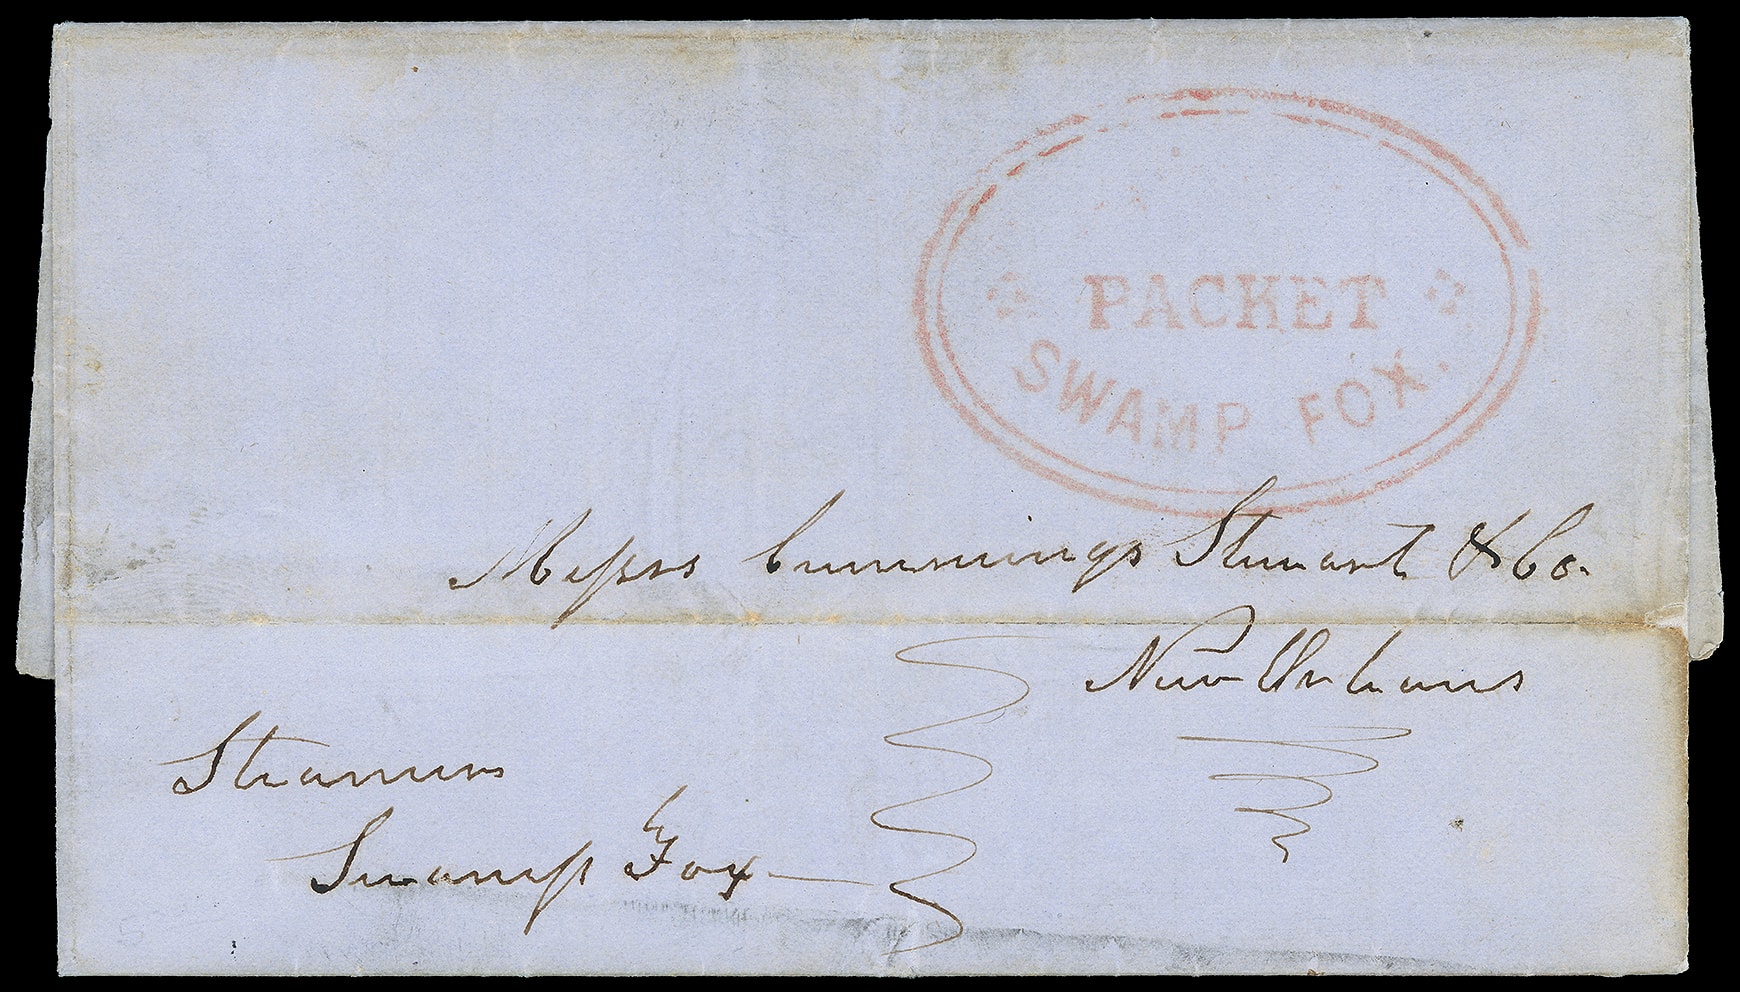 PACKET
SWAMP FOX.
Messrs Cummings Stewart & Co.
New Orleans
Steamer
Swamp Fox